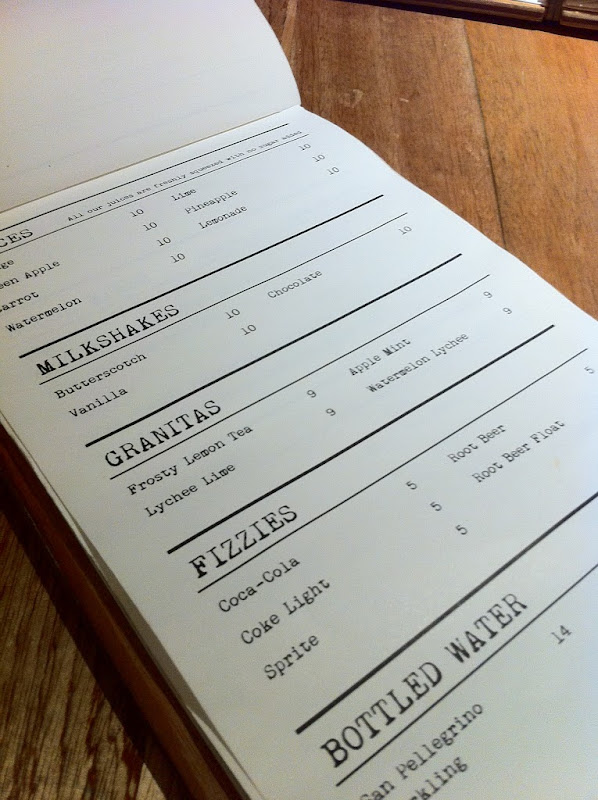 CES
All our juices are freshly squeezed with no sugar added
ge 10 Lime 10
een Apple 10 Pineapple 10
arrot 10 Lemonade 10
Watermelon 10
MILKSHAKES
Butterscotch 10 Chocolate 10
Vanilla 10
GRANITAS
Frosty Lemon Tea 9 Apple Mint 9
Lychee Lime 9 Watermelon Lychee 9
FIZZIES
Coca-Cola 5 Root Beer 5
Coke Light 5 Root Beer Float
Sprite 5
BOTTLED WATER
San Pellegrino 14
rkling